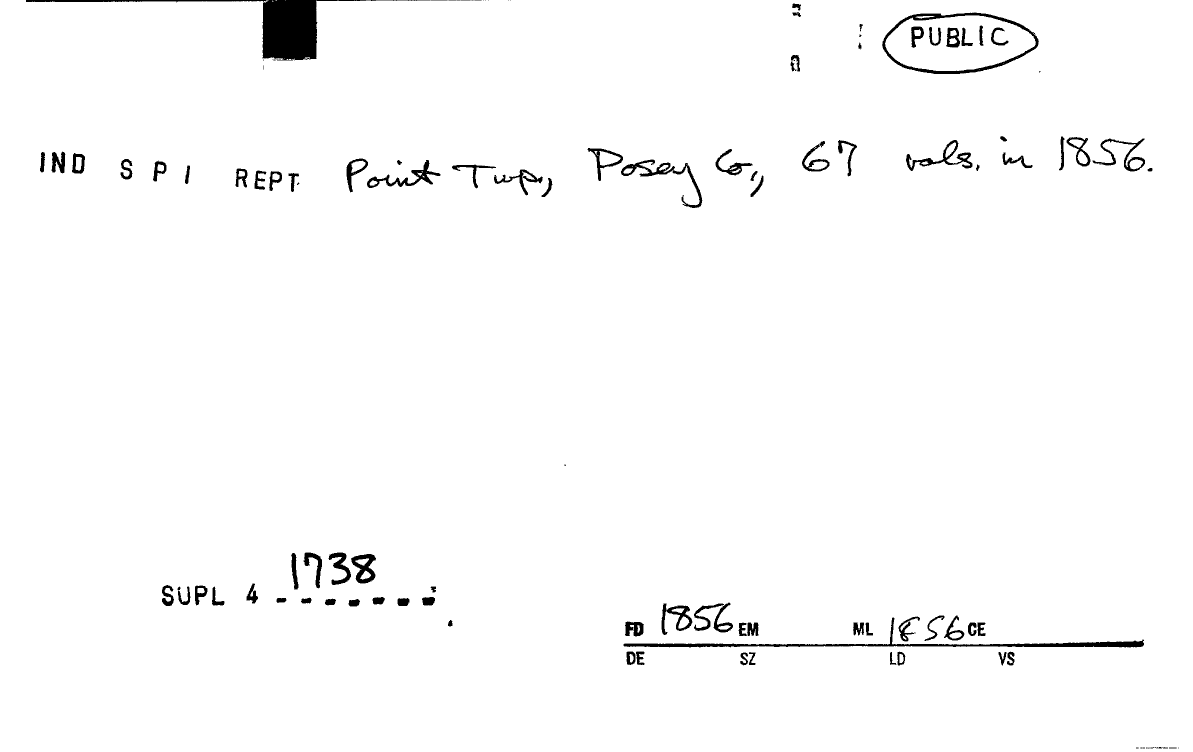 PUBLIC
IND S P I REPT Point Twp., Posey Co., 67 vols. in 1856.
SUPL 4 1738
FD 1856 EM ML 1856 CE
DE SZ LD VS